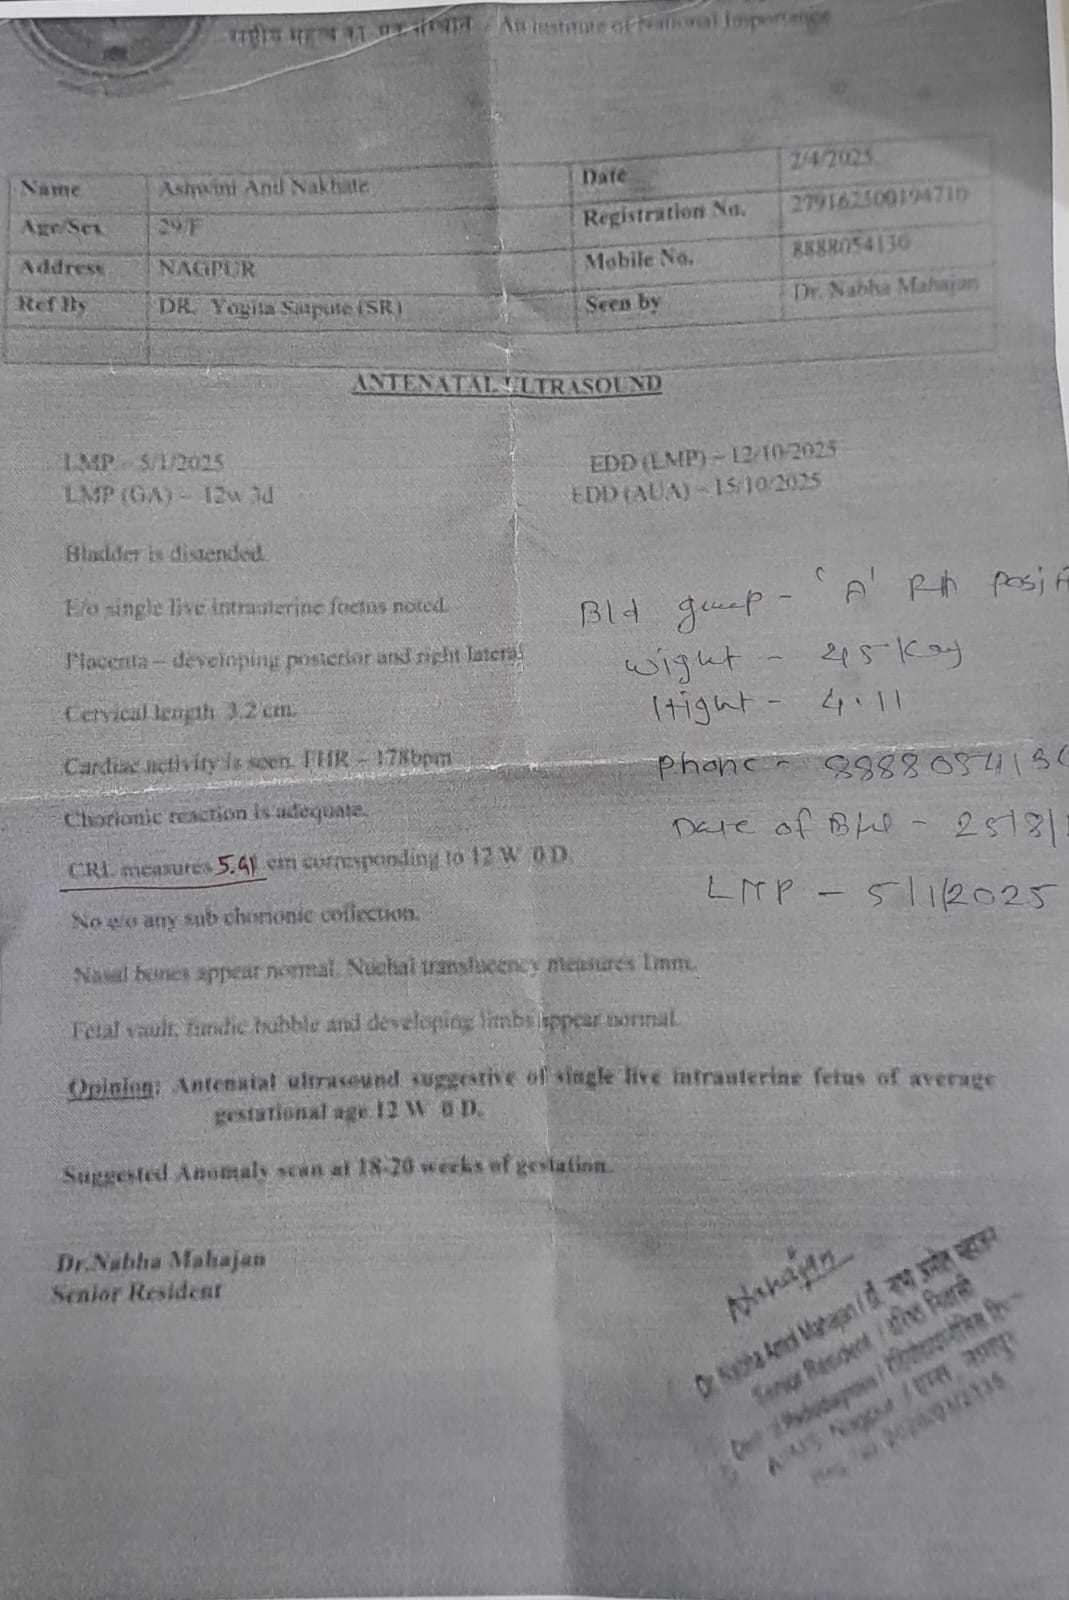 राष्ट्रीय महत्व का संस्थान - An Institute of National Importance
Name Ashwini Anil Nakhate Date 2/4/2025
Age/Sex 29/F Registration No. 279162500194710
Address NAGPUR Mobile No. 8888054130
Ref By DR. Yogita Satpute (SR) Seen by Dr. Nabha Mahajan
ANTENATAL ULTRASOUND
LMP – 5/1/2025 EDD (LMP) – 12/10/2025
LMP (GA) – 12w 3d EDD (AUA) – 15/10/2025
Bladder is distended.
E/o single live intrauterine foetus noted. Bld group - 'A' Rh
Placenta – developing posterior and right lateral wight - 45 Kg
Cervical length 3.2 cm. Hight - 4.11
Cardiac activity is seen. FHR – 178bpm Phone - 888805413
Chorionic reaction is adequate. Date of - 25/8/
CRL measures 5.41 cm corresponding to 12 W 0 D. LMP - 5/1/2025
No e/o any sub chorionic collection.
Nasal bones appear normal. Nuchal translucency measures 1mm.
Fetal vault, fundic bubble and developing limbs appear normal.
Opinion: Antenatal ultrasound suggestive of single live intrauterine fetus of average
gestational age 12 W 0 D.
Suggested Anomaly scan at 18-20 weeks of gestation.
Dr.Nabha Mahajan
Senior Resident
Dr Nabha Amol Mahajan / डॉ. नभा अमोल महाजन
Senior Resident / वरिष्ठ निवासी
Nagpur / एम्स, नागपुर